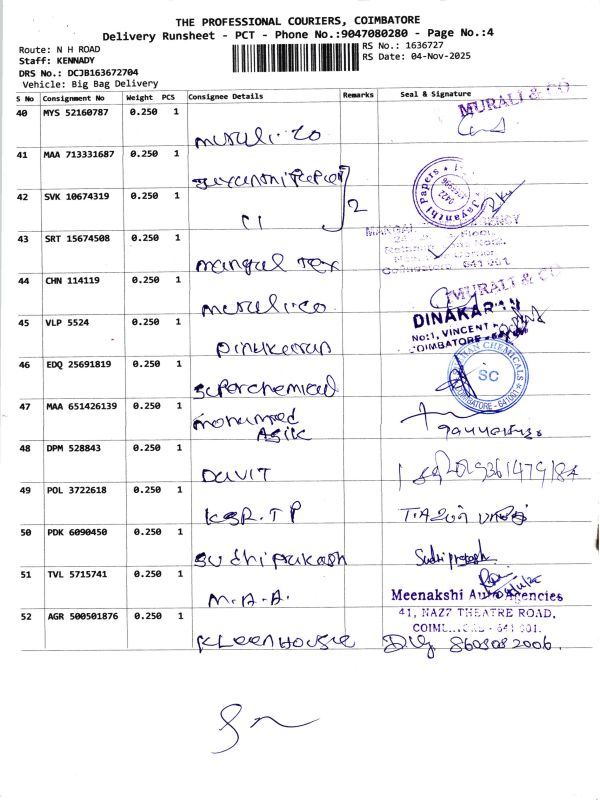 THE PROFESSIONAL COURIERS, COIMBATORE
Delivery Runsheet - PCT - Phone No.:9047080280 - Page No.:4
Route: N H ROAD
Staff: KENNADY
DRS No.: DCJB163672704
Vehicle: Big Bag Delivery
RS No.: 1636727
RS Date: 04-Nov-2025
S No Consignment No Weight PCS Consignee Details Remarks Seal & Signature
40 MYS 52160787 0.250 1
MURALI & CO
41 MAA 713331687 0.250 1
Jayanthi Papers
42 SVK 10674319 0.250 1
2
43 SRT 15674508 0.250 1
mangal Tex
44 CHN 114119 0.250 1
MURALI & CO
45 VLP 5524 0.250 1
DINAKARAN
No:1, VINCENT
COIMBATORE
46 EDQ 25691819 0.250 1
superchemical
SC
COIMBATORE - 641001
47 MAA 651426139 0.250 1
mohammed
Asik
48 DPM 528843 0.250 1
DAVIT
49 POL 3722618 0.250 1
KGR. TP
50 PDK 6090450 0.250 1
Sudhiprakash
51 TVL 5715741 0.250 1
M.A.A.
Meenakshi Auto Agencies
41, NAZZ THEATRE ROAD,
52 AGR 500501876 0.250 1
KLeenHouse
8608082006.